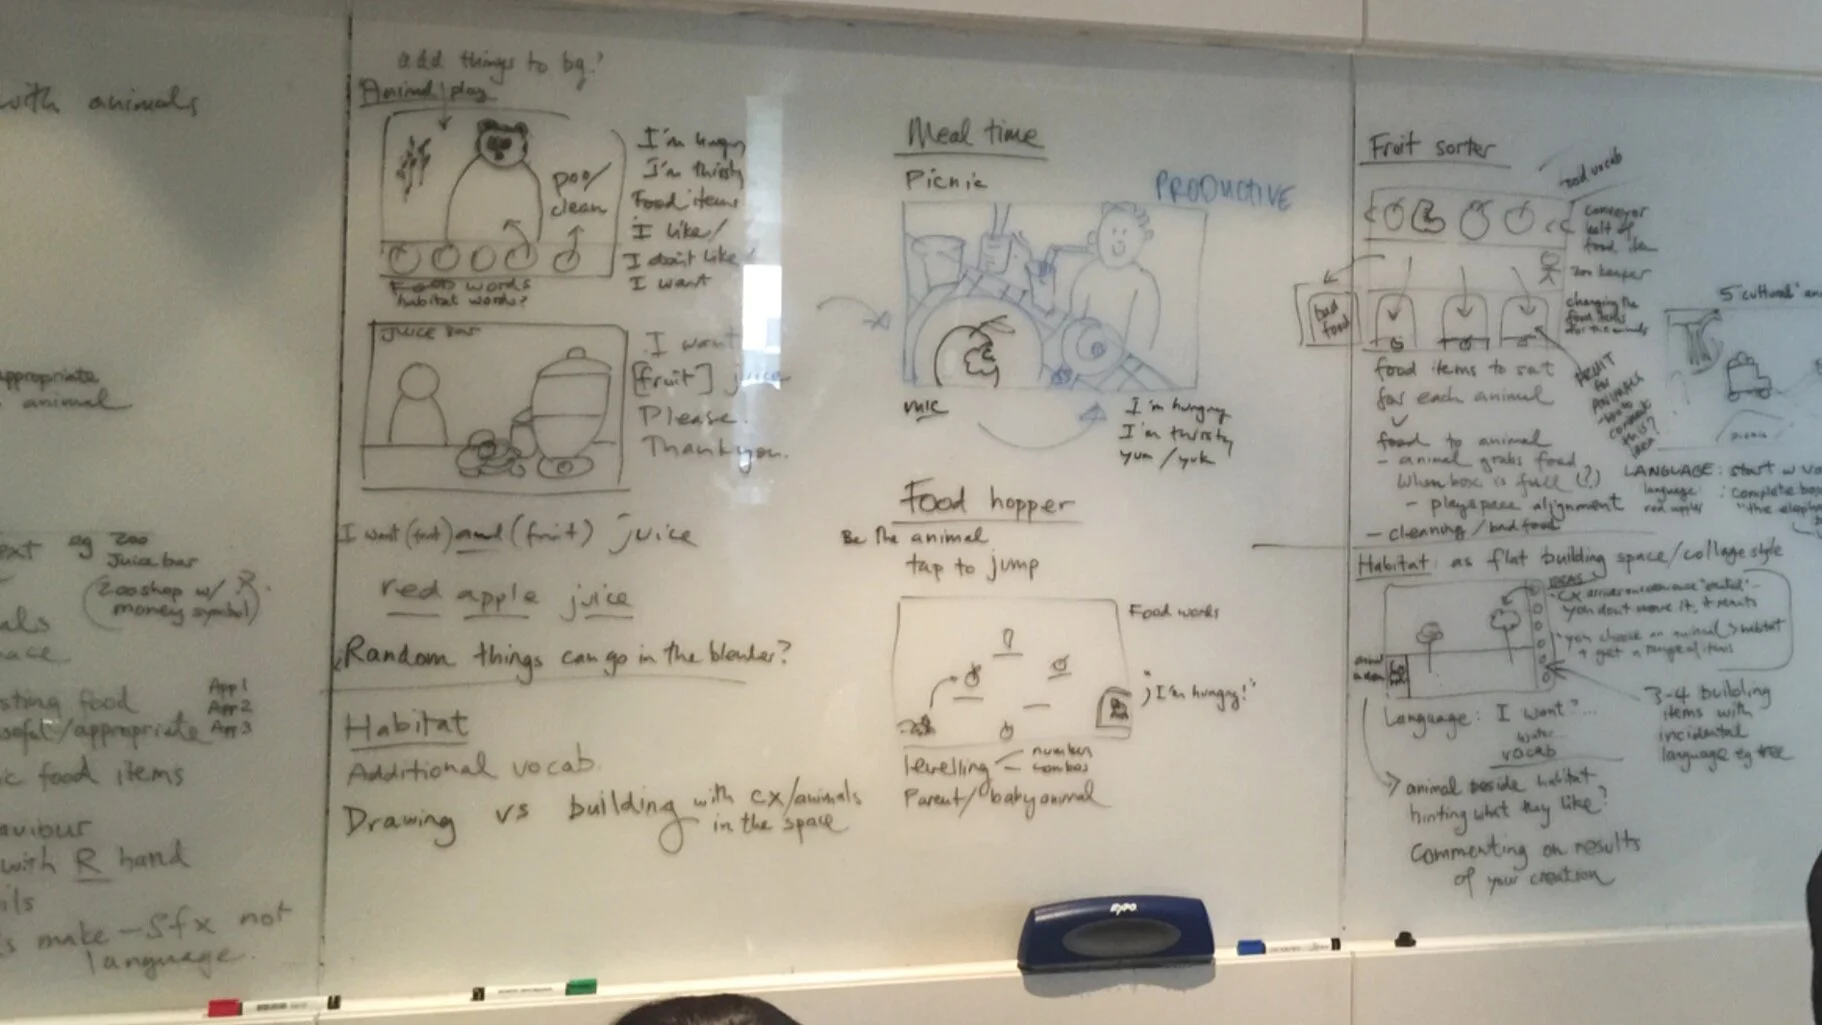 with animals
appropriate
animal
eg Zoo
Juice bar
Zoo shop w/ ?
money symbol
App 1
App 2
App 3
food
/appropriate
food items
with R hand
make - Sfx not
language.
add things to bg!
Animal play
poo/
clean
I'm hungry
I'm thirsty
Food items
I like/
I don't like/
I want
Food words
habitat words?
JUICE BAR
I want
[fruit] juice
Please.
Thankyou.
I want (fruit) and (fruit) juice
red apple juice
Random things can go in the blender?
Habitat
Additional vocab.
Drawing vs building with cx/animals
in the space
Meal time
Picnic
PRODUCTIVE
mic
I'm hungry
I'm thirsty
yum / yuk
Food hopper
Be the animal
tap to jump
Food words
"I'm hungry!"
levelling - number
- combos
Parent/baby animal
Fruit sorter
food vocab
conveyor
belt of
food
zoo keeper
changing the
food items
for the animals
bad
food
food items to sort
for each animal
FRUIT
for
ANIMALS
how to
connect
this?
food to animal
- animal grabs food
when box is full (?)
- playspace alignment
- cleaning / bad food
5 "cultural"
picnic
LANGUAGE : start w
language : complete
red apples "the
Habitat as flat building space/collage style
IDEAS
you don't move it, it reacts
"you choose an animal > habitat
+ get a range of items
Language: I want ...
water...
vocab
3-4 building
items with
incidental
language eg tree
animal beside habitat
hinting what they like?
Commenting on results
of your creation
EXPO